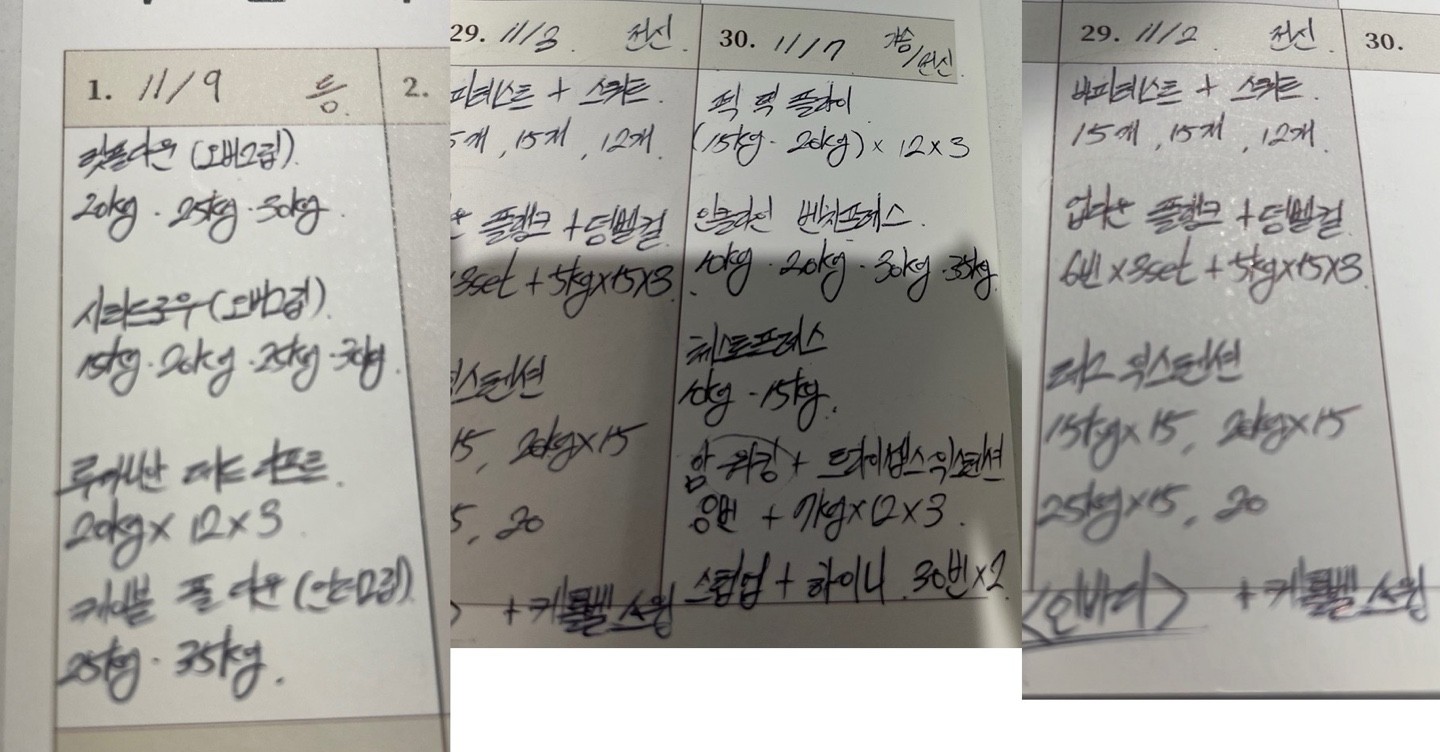 1. 11/9 등
2.
랫풀다운 (오버그립).
20kg · 25kg · 30kg.
시티드로우 (오버그립).
15kg · 20kg · 25kg · 30kg.
루마니안 데드 리프트.
20kg × 12 × 3
케이블 풀 다운 (언더그립)
25kg · 35kg.
29. 11/3. 전신.
피테스트 + 스쿼트.
5개, 15개, 12개.
운 플랭크 + 덤벨컬
3set + 5kg×15×3.
익스텐션
15, 20kg×15
5, 20
> + 케틀벨 스윙
30. 11/7 가슴/전신.
펙 덱 플라이
(15kg · 20kg) × 12 × 3
인클라인 벤치프레스.
10kg · 20kg · 30kg · 35kg.
체스트프레스
10kg · 15kg.
암 워킹 + 트라이셉스 익스텐션
8번 + 7kg×12×3.
스텝업 + 하이니 30번×2.
29. 11/2 전신.
30.
버피테스트 + 스쿼트.
15개, 15개, 12개.
업다운 플랭크 + 덤벨컬
6번×3set + 5kg×15×3.
레그 익스텐션
15kg×15, 20kg×15
25kg×15, 20
<인바디> + 케틀벨 스윙